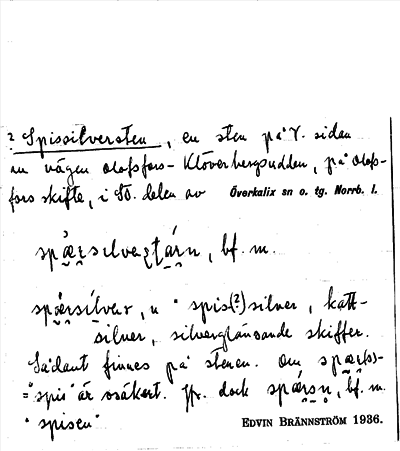 ? Spissilversten, en sten på V. sidan
an vägen Olofsfors-Klöverbergsudden, på Olofs-
fors skifte, i SO. delen av Överkalix sn o. tg. Norrb. l.
bf. m.
n " spis(?)silver, katt-
silver, silverglänsande skiffer.
Sådant finnes på stenen. Om
="spis" är osäkert. Jfr. dock bf. m.
"spisen"
EDVIN BRÄNNSTRÖM 1936.